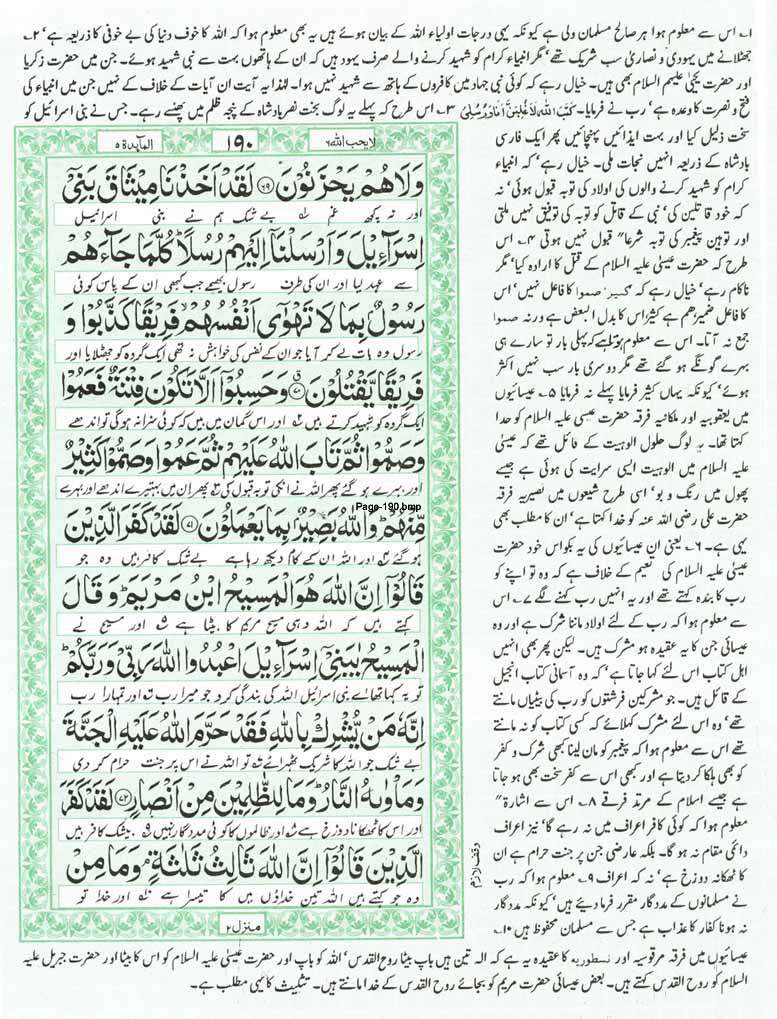 ۱؎ اس سے معلوم ہوا ہر صالح مسلمان ولی ہے کیونکہ یہی درجات اولیاء اللہ کے بیان ہوئے ہیں یہ بھی معلوم ہوا کہ اللہ کا خوف دنیا کی بے خوفی کا ذریعہ ہے‘ ۲؎
جھٹلانے میں یہودی و نصاریٰ سب شریک تھے‘ مگر انبیاء کرام کو شہید کرنے والے صرف یہود ہیں کہ ان کے ہاتھوں بہت سے نبی شہید ہوئے۔ جن میں حضرت زکریا
اور حضرت یحییٰ علیہم السلام بھی ہیں۔ خیال رہے کہ کوئی نبی جہاد میں کافروں کے ہاتھ سے شہید نہیں ہوا۔ لہٰذا یہ آیت ان آیات کے خلاف کے نہیں جن میں انبیاء کی
فتح و نصرت کا وعدہ ہے‘ رب نے فرمایا۔ كَتَبَ اللّٰهُ لَاَغْلِبَنَّ اَنَا وَرُسُلِيْ ۳؎ اس طرح کہ پہلے یہ لوگ بخت نصر بادشاہ کے پنجہ ظلم میں پھنسے رہے۔ جس نے بنی اسرائیل کو
سخت ذلیل کیا اور بہت ایذائیں پہنچائیں پھر ایک فارسی
بادشاہ کے ذریعہ انہیں نجات ملی۔ خیال رہے‘ کہ انبیاء
کرام کو شہید کرنے والوں کی اولاد کی توبہ قبول ہوئی‘ نہ
کہ خود قاتلین کی‘ نبی کے قاتل کو توبہ کی توفیق نہیں ملتی
اور توہین پیغمبر کی توبہ شرعا" قبول نہیں ہوتی ۴؎ اس
طرح کہ حضرت عیسیٰ علیہ السلام کے قتل کا ارادہ کیا‘ مگر
ناکام رہے‘ خیال رہے کہ کثیر صموا کا فاعل نہیں‘ اس
کا فاعل ضمیر ھم ہے کثیر اس کا بدل البعض ہے ورنہ صموا
جمع نہ آتا۔ اس سے معلوم ہوا پہلی بار تو سارے ہی
بہرے گونگے ہو گئے تھے مگر دوسری بار سب نہیں اکثر
ہوئے‘ کیونکہ یہاں کثیر فرمایا پہلے نہ فرمایا ۵؎ عیسائیوں
میں یعقوبیہ اور ملکانیہ فرقہ حضرت عیسیٰ علیہ السلام کو خدا
کہتا تھا۔ یہ لوگ حلول الوہیت کے قائل تھے کہ عیسیٰ
علیہ السلام میں الوہیت ایسی سرایت کی ہوئی ہے جیسے
پھول میں رنگ و بو‘ اسی طرح شیعوں میں نصیریہ فرقہ
حضرت علی رضی اللہ عنہ کو خدا کہتا ہے‘ ان کا مطلب بھی
یہی ہے۔ ۶؎ یعنی ان عیسائیوں کی یہ بکواس خود حضرت
عیسیٰ علیہ السلام کی تعلیم کے خلاف ہے کہ وہ تو اپنے کو
رب کا بندہ کہتے تھے اور یہ انہیں رب کہنے لگے ۷؎ اس
سے معلوم ہوا کہ رب کے لئے اولاد ماننا شرک ہے اور وہ
عیسائی جن کا یہ عقیدہ ہو مشرک ہیں۔ لیکن پھر بھی انہیں
اہل کتاب اس لئے کہا جاتا ہے‘ کہ وہ آسمانی کتاب انجیل
کے قائل ہیں۔ جو مشرکین فرشتوں کو رب کی بیٹیاں مانتے
تھے‘ وہ اس لئے مشرک کہلائے کہ کسی کتاب کو نہ مانتے
تھے اس سے معلوم ہوا کہ پیغمبر کو مان لینا کبھی شرک و کفر
کو بھی ہلکا کر دیتا ہے اور کبھی اس سے کفر سخت بھی ہو جاتا
ہے جیسے اسلام کے مرتد فرقے ۸؎ اس سے اشارۃ"
معلوم ہوا کہ کوئی کافر اعراف میں نہ رہے گا‘ نیز اعراف
دائمی مقام نہ ہو گا۔ بلکہ عارضی جن پر جنت حرام ہے ان
کا ٹھکانہ دوزخ ہے‘ نہ کہ اعراف ۹؎ معلوم ہوا کہ رب
نے مسلمانوں کے مددگار مقرر فرما دیئے ہیں‘ کیونکہ مددگار
نہ ہونا کفار کا عذاب ہے جس سے مسلمان محفوظ ہیں ۱۰؎
لا یحب اللہ ۶
۱۹۰
المآئدۃ ۵
وَلَا هُمْ يَحْزَنُوْنَ ﴿۶۹﴾ لَقَدْ اَخَذْنَا مِيْثَاقَ بَنِيْٓ
اور نہ کچھ غم ۱؎ بے شک ہم نے بنی اسرائیل
اِسْرَآءِيْلَ وَاَرْسَلْنَآ اِلَيْهِمْ رُسُلًا ؕ كُلَّمَا جَآءَهُمْ
سے عہد لیا اور ان کی طرف رسول بھیجے جب کبھی ان کے پاس کوئی
رَسُوْلٌۢ بِمَا لَا تَهْوٰٓى اَنْفُسُهُمْ ۙ فَرِيْقًا كَذَّبُوْا وَ
رسول وہ بات لے کر آیا جو ان کے نفس کی خواہش نہ تھی ایک گروہ کو جھٹلایا اور
فَرِيْقًا يَّقْتُلُوْنَ ﴿۷۰﴾ وَحَسِبُوْٓا اَلَّا تَكُوْنَ فِتْنَةٌ فَعَمُوْا
ایک گروہ کو شہید کرتے ہیں ۲؎ اور اس گمان میں ہیں کہ کوئی سزا نہ ہوگی تو اندھے
وَصَمُّوْا ثُمَّ تَابَ اللّٰهُ عَلَيْهِمْ ثُمَّ عَمُوْا وَصَمُّوْا كَثِيْرٌ
اور بہرے ہو گئے پھر اللہ نے انکی توبہ قبول کی ۳؎ پھر ان میں بہتیرے اندھے اور بہرے
مِّنْهُمْ ؕ وَاللّٰهُ بَصِيْرٌۢ بِمَا يَعْمَلُوْنَ ﴿۷۱﴾ لَقَدْ كَفَرَ الَّذِيْنَ
Page-190.bmp
ہو گئے ۴؎ اور اللہ ان کے کام دیکھ رہا ہے بے شک کافر ہیں وہ جو
قَالُوْٓا اِنَّ اللّٰهَ هُوَ الْمَسِيْحُ ابْنُ مَرْيَمَ ؕ وَقَالَ
کہتے ہیں کہ اللہ وہی مسیح مریم کا بیٹا ہے ۵؎ اور مسیح نے
الْمَسِيْحُ يٰبَنِيْٓ اِسْرَآءِيْلَ اعْبُدُوا اللّٰهَ رَبِّيْ وَرَبَّكُمْ ؕ
تو یہ کہا تھا اے بنی اسرائیل اللہ کی بندگی کرو جو میرا رب ۶؎ اور تمہارا رب
اِنَّهٗ مَنْ يُّشْرِكْ بِاللّٰهِ فَقَدْ حَرَّمَ اللّٰهُ عَلَيْهِ الْجَنَّةَ
بے شک جو اللہ کا شریک ٹھہرائے ۷؎ تو اللہ نے اس پر جنت حرام کر دی
وَمَاْوٰىهُ النَّارُ ؕ وَمَا لِلظّٰلِمِيْنَ مِنْ اَنْصَارٍ ﴿۷۲﴾ لَقَدْ كَفَرَ
اور اس کا ٹھکانا دوزخ ہے ۸؎ اور ظالموں کا کوئی مددگار نہیں ۹؎ بیشک کافر ہیں
الَّذِيْنَ قَالُوْٓا اِنَّ اللّٰهَ ثَالِثُ ثَلٰثَةٍ ۘ وَمَا مِنْ
وہ جو کہتے ہیں اللہ تین خداؤں میں کا تیسرا ہے ۱۰؎ اور خدا تو
وقف لازم
منزل ۲
عیسائیوں میں فرقہ مرقوسیہ اور نسطوریہ کا عقیدہ یہ ہے کہ الہ تین ہیں باپ بیٹا روح القدس‘ اللہ کو باپ اور حضرت عیسیٰ علیہ السلام کو اس کا بیٹا اور حضرت جبریل علیہ
السلام کو روح القدس کہتے ہیں۔ بعض عیسائی حضرت مریم کو بجائے روح القدس کے خدا مانتے ہیں۔ تثلیث کا یہی مطلب ہے۔